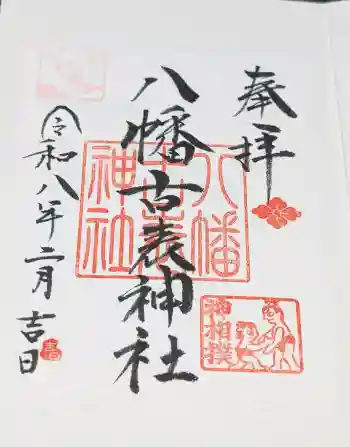 奉拝
八幡古表神社
令和八年二月吉日
八幡
古表
神社
神相撲